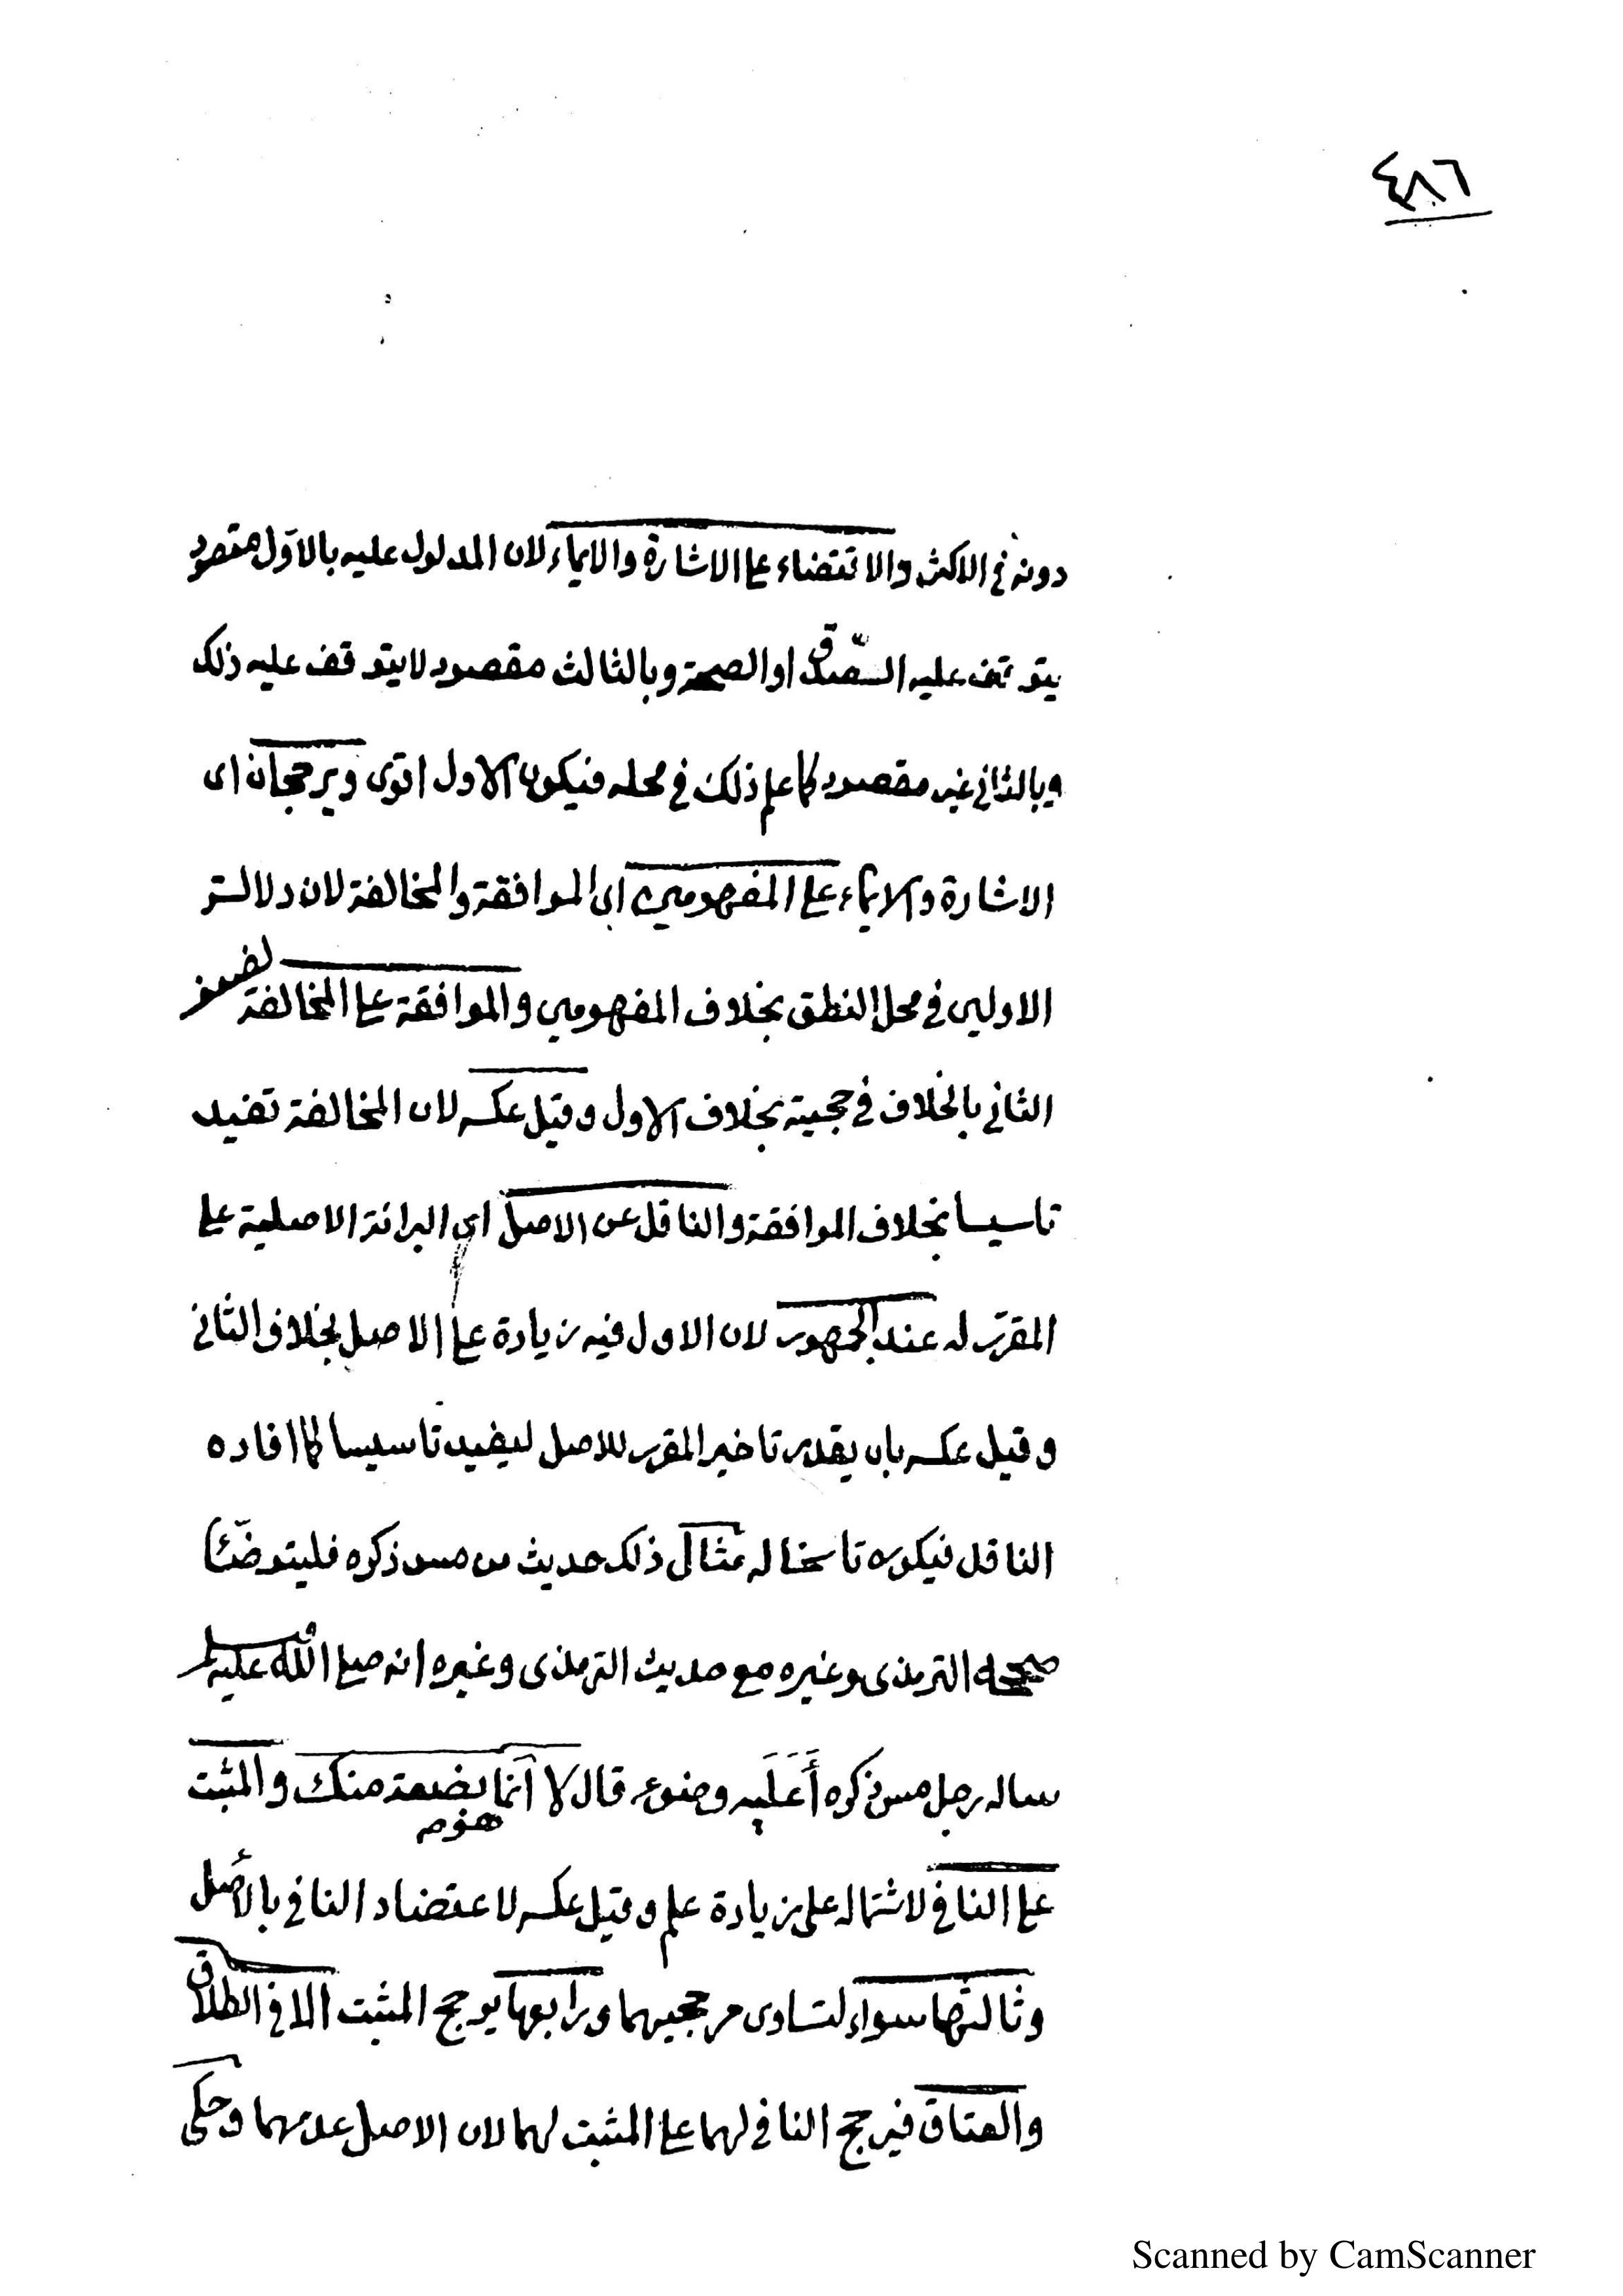 ٤٨٦
دونه في الاكثر والاقتضاء على الاشارة والايماء لان المدلول عليه بالاوّل مقصود
يتوقف عليه الصّدق او الصحة وبالثالث مقصود لا يتوقف عليه ذلك
وبالثاني غير مقصود كما علم ذلك في محله فيكون الاول اقوى ويرجحان اى
الاشارة والايماء على المفهومين اى الموافقة والمخالفة لان دلالة
الاولين في محل النطق بخلاف المفهومين والموافقة على المخالفة لضعف
الثاني بالخلاف في حجيته بخلاف الاول وقيل عكسه لان المخالفة تفيد
تاسيسا بخلاف الموافقة والناقل عن الاصل اى البرائة الاصلية على
المقرّر له عند الجمهور لان الاول فيه زيادة على الاصل بخلاف الثاني
وقيل عكسه بان يقدر تاخير المقرر للاصل ليفيد تاسيسا كما افاده
الناقل فيكون ناسخا له مثال ذلك حديث من مس ذكره فليتوضّئا
صححه الترمذى وغيره مع حديث الترمذى وغيره انه صلى الله عليه وسلم
ساله رجل مس ذكره أَعَلَيه وضوء قال لا انما هو بضعة منك والمثبت
على النافي لاشتماله على زيادة علم وقيل عكسه لاعتضاد النافي بالأصل
وثالثها سواء لتساوى مرجحيهما ورابعها يرجح المثبت الا في الطلاق
والعتاق فيرجح النافي لهما على المثبت لهما لان الاصل عدمهما وحكى
Scanned by CamScanner